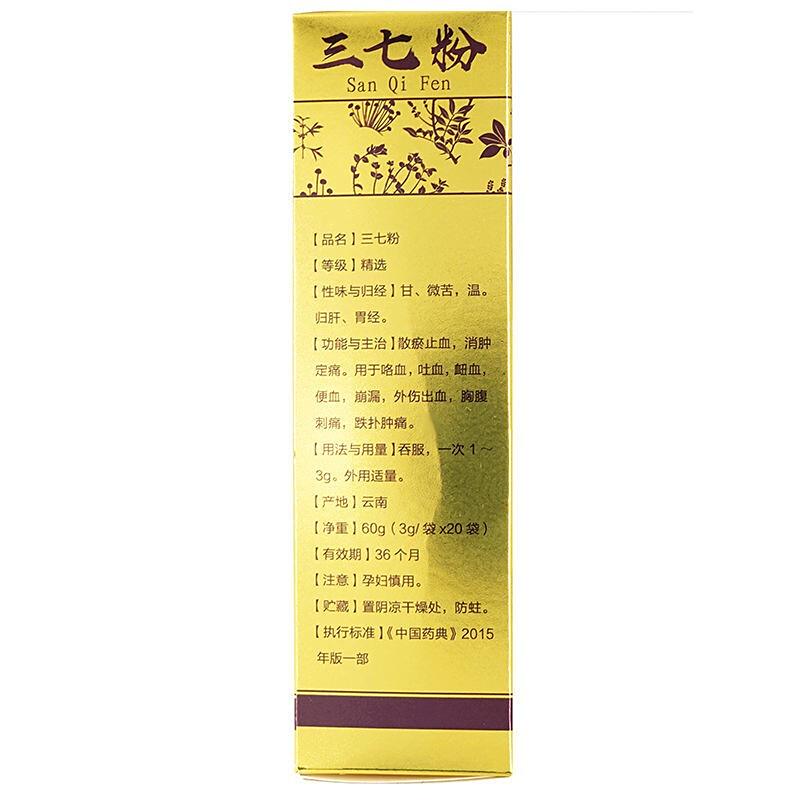 三七粉
San Qi Fen
【品名】三七粉
【等级】精选
【性味与归经】甘、微苦，温。
归肝、胃经。
【功能与主治】散瘀止血，消肿
定痛。用于咯血，吐血，衄血，
便血，崩漏，外伤出血，胸腹
刺痛，跌扑肿痛。
【用法与用量】吞服，一次 1～
3g。外用适量。
【产地】云南
【净重】60g（3g/ 袋 x20 袋）
【有效期】36 个月
【注意】孕妇慎用。
【贮藏】置阴凉干燥处，防蛀。
【执行标准】《中国药典》2015
年版一部